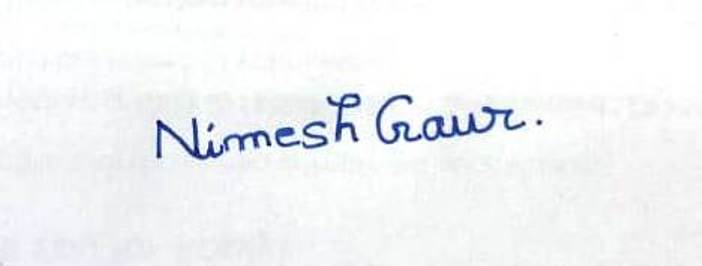 Nimesh Gaur.